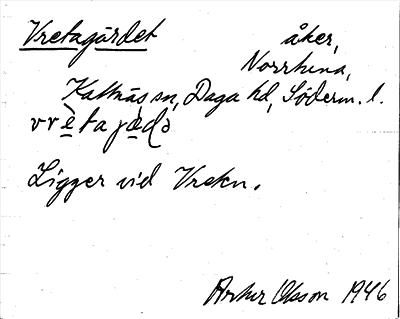 Vretagärdet åker,
Norrtuna,
Kattnäs sn, Daga hd, Söderm. l.
Ligger vid Vretan.
Artur Olsson 1946